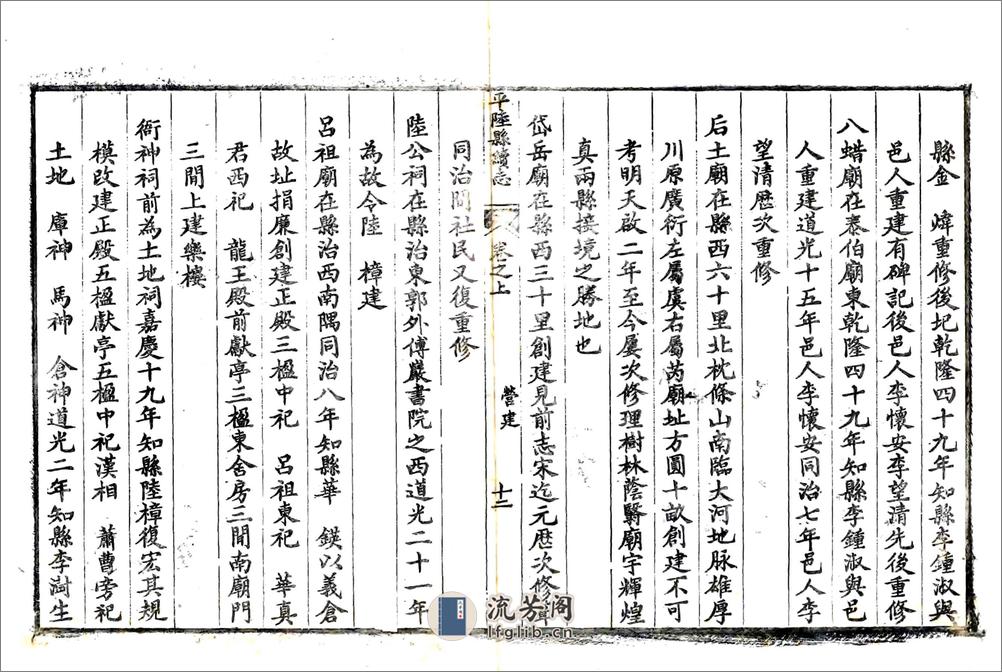 縣金　煒重修後圯乾隆四十九年知縣李鍾淑與
邑人重建有碑記後邑人李懷安李望清先後重修
八蜡廟在泰伯廟東乾隆四十九年知縣李鍾淑與邑
人重建道光十五年邑人李懷安同治七年邑人李
望清歷次重修
后土廟在縣西六十里北枕條山南臨大河地脉雄厚
川原廣衍左屬虞右屬芮廟址方圓十畝創建不可
考明天啟二年至今屢次修理樹林蔭翳廟宇輝煌
真兩縣接境之勝地也
岱岳廟在縣西三十里創建見前志宋迄元歷次修葺
平陸縣續志　卷之上　營建　十二
同治間社民又復重修
陸公祠在縣治東郭外傅巖書院之西道光二十一年
為故令陸　樟建
呂祖廟在縣治西南隅同治八年知縣華　鍈以義倉
故址捐廉創建正殿三楹中祀　呂祖東祀　華真
君西祀　龍王殿前獻亭三楹東舍房三間南廟門
三間上建樂樓
衙神祠前為土地祠嘉慶十九年知縣陸樟復宏其規
模改建正殿五楹獻亭五楹中祀漢相　蕭曹旁祀
土地　庫神　馬神　倉神道光二年知縣李澍生
流芳阁
lfglib.cn